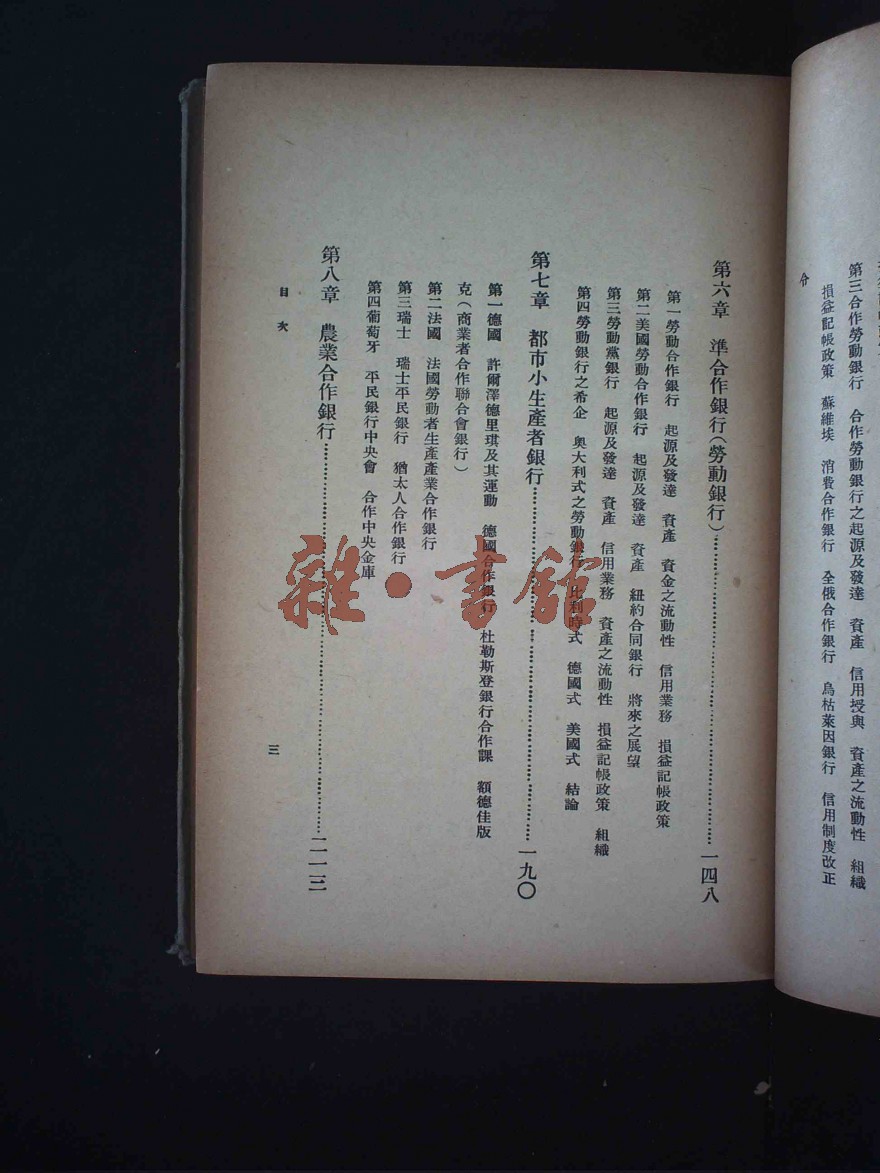 第三合作勞動銀行　合作勞動銀行之起源及發達　資產　信用授與　資產之流動性　組織
損益記帳政策　蘇維埃　消費合作銀行　全俄合作銀行　烏枯萊因銀行　信用制度改正
第六章　準合作銀行(勞動銀行)……………一四八
第一勞動合作銀行　起源及發達　資產　資金之流動性　信用業務　損益記帳政策
第二美國勞動合作銀行　起源及發達　資產　紐約合同銀行　將來之展望
第三勞動黨銀行　起源及發達　資產　信用業務　資產之流動性　損益記帳政策　組織
第四勞動銀行之希企　奧大利式之勞動銀行　比利時式　德國式　美國式　結論
第七章　都市小生產者銀行……………一九〇
第一德國　許爾澤德里琪及其運動　德國合作銀行　杜勒斯登銀行合作課　額德佳版
克(商業者合作聯合會銀行)
第二法國　法國勞動者生產產業合作銀行
第三瑞士　瑞士平民銀行　猶太人合作銀行
第四葡萄牙　平民銀行中央會　合作中央金庫
第八章　農業合作銀行……………二一三
目次
三
雜·書館